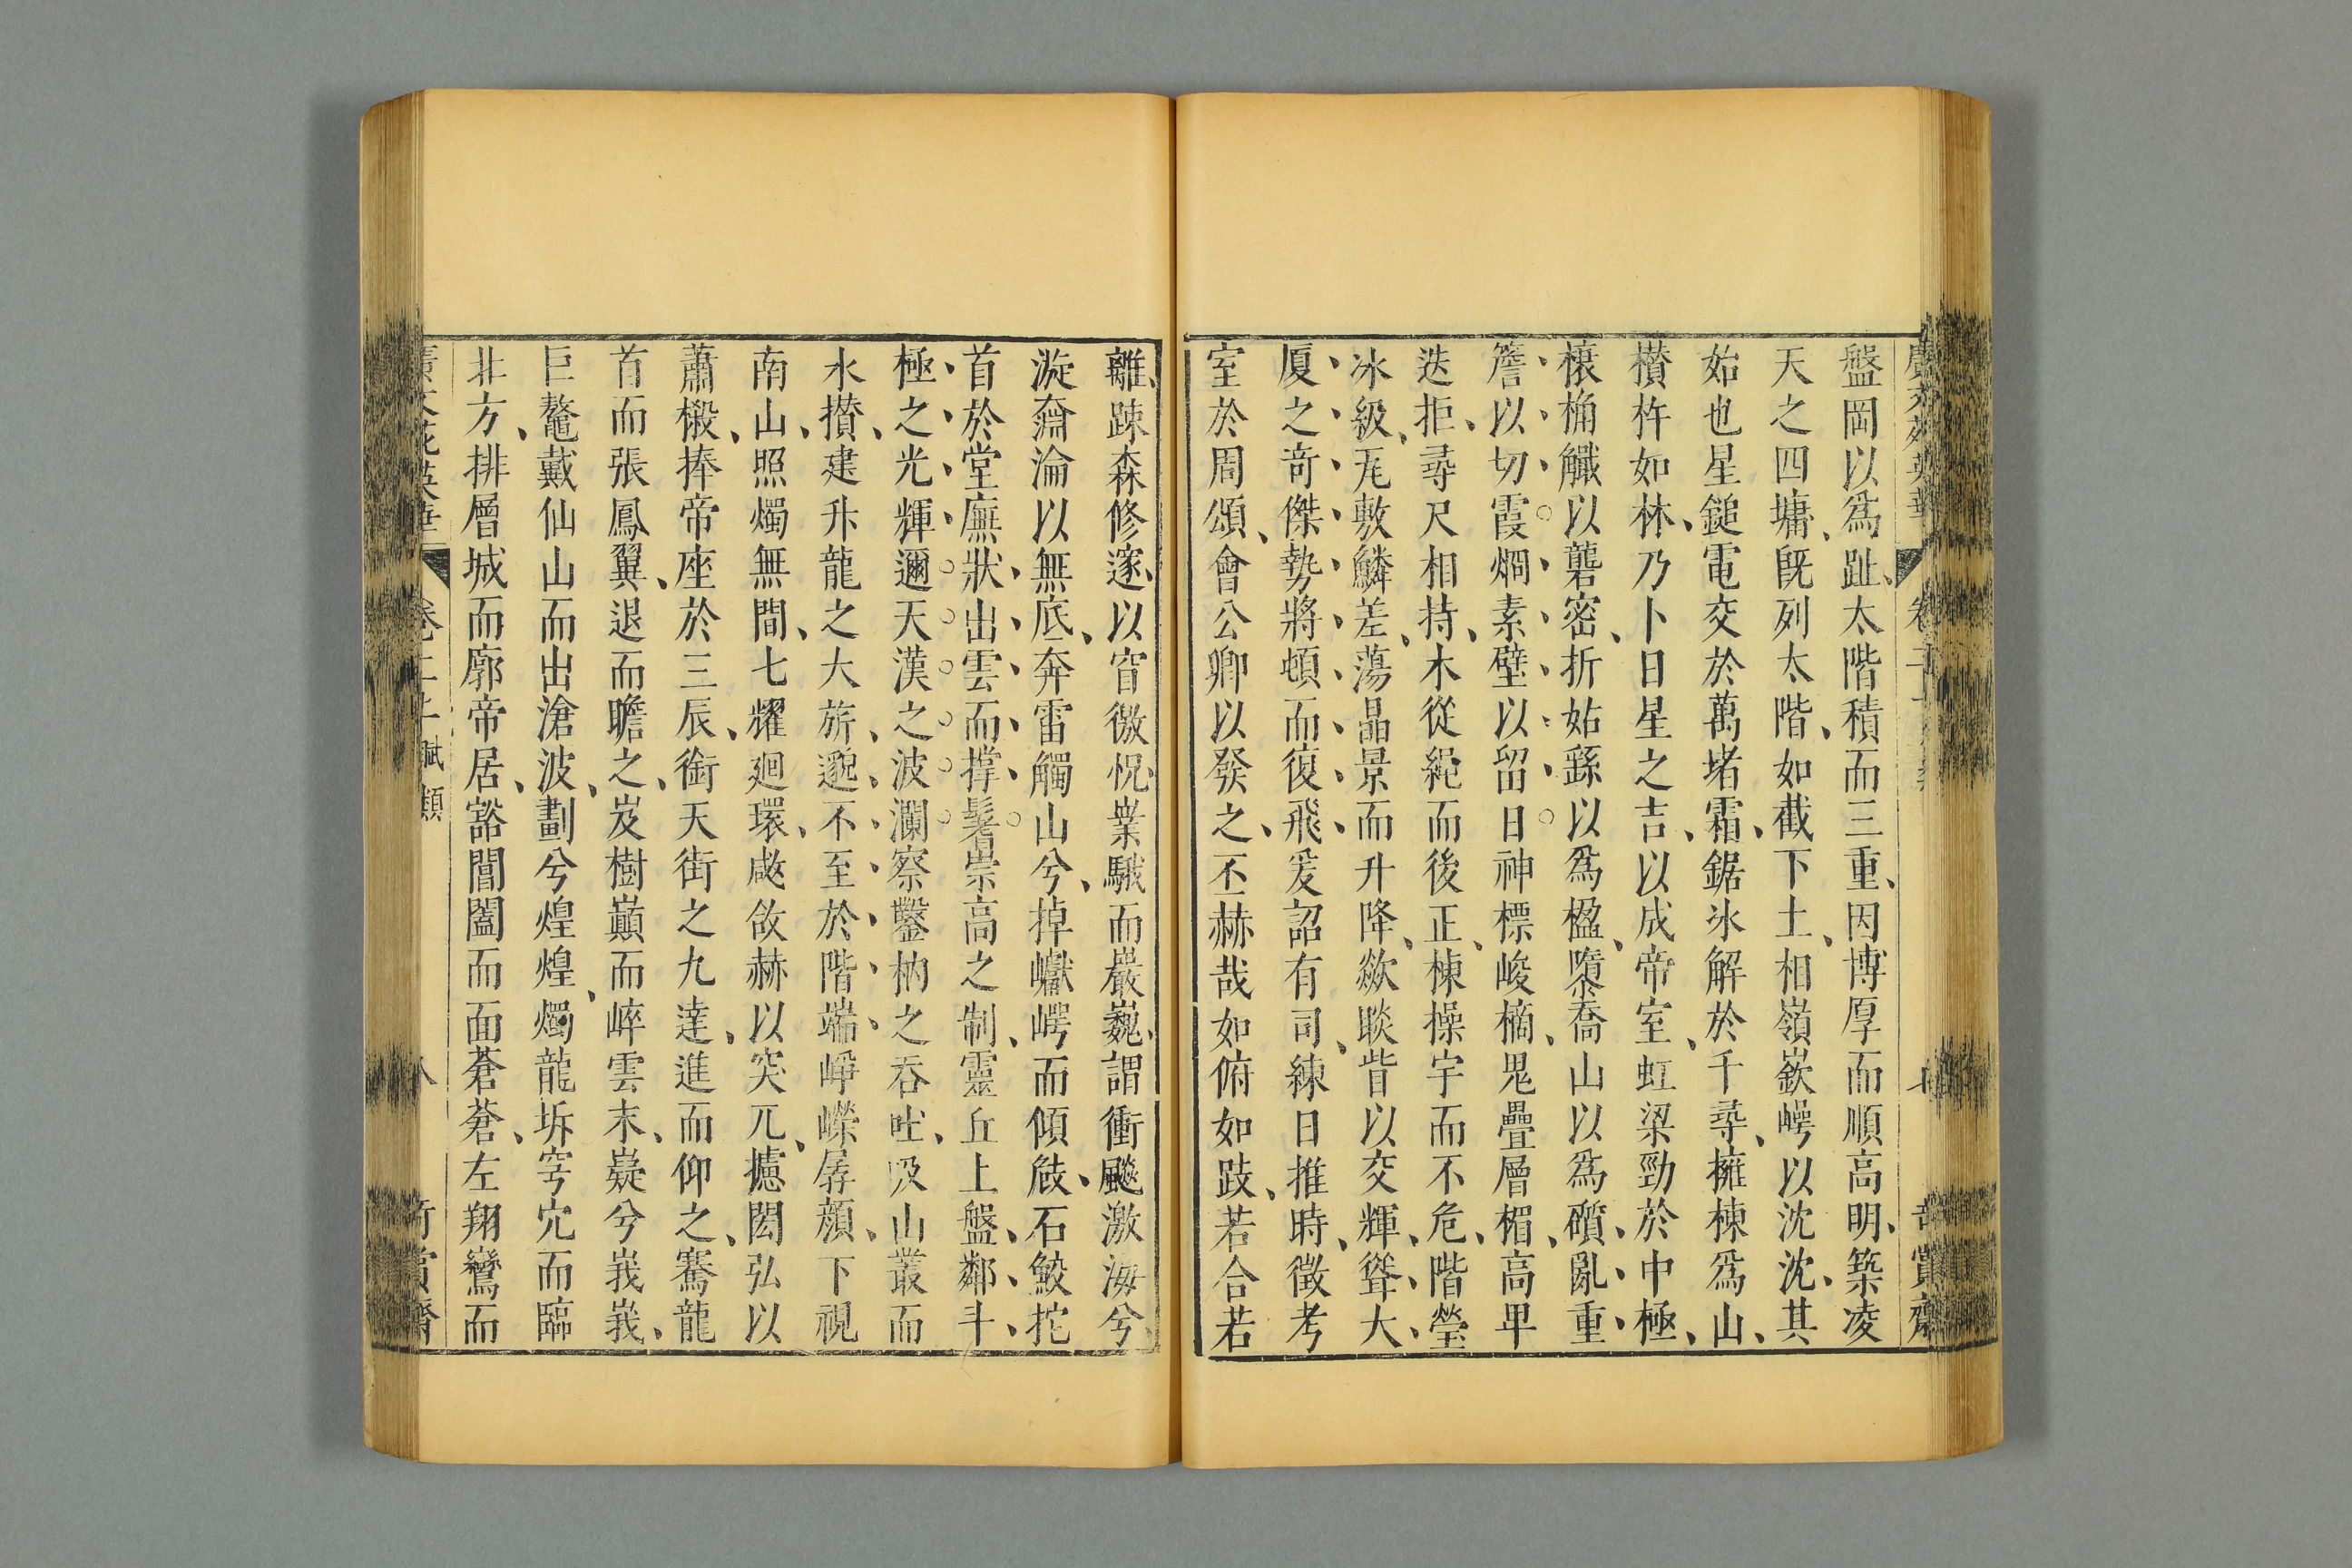 盤岡以爲趾太階積而三重因博厚而順高明築凌
天之四墉旣列太階如截下土相嶺嶔崿以沈沈其
始也星鎚電交於萬堵霜鋸氷解於千尋擁棟爲山
攢杵如林乃卜日星之吉以成帝室虹梁勁於中極
榱桷鑯以礱密折姑繇以爲楹隳喬山以爲礩亂重
簷以切霞烱素壁以留日神標峻樀鬼疊層楣高卑
迭拒尋尺相持木從繩而後正棟操宇而不危階瑩
冰級瓦敷鱗差蕩晶景而升降欻睒眥以交輝聳大
厦之竒傑勢將頓而復飛爰詔有司練日推時徵考
室於周頌會公卿以發之丕赫哉如俯如跂若合若
離踈森修邃以窅微怳嶪騀而巖巍謂衝飈激海兮
漩奫淪以無底奔雷觸山兮掉巘崿而傾㩻石鮫挓
首於堂廡狀出雲而撑鬐崇高之制靈丘上盤鄰斗
極之光輝邇天漢之波瀾察鑿枘之吞吐吸山叢而
水攅建升龍之大旂邈不至於階端崢嶸孱顔下視
南山照燭無間七耀廻環㰸欱赫以突兀攄閎弘以
蕭椴捧帝座於三辰衝天街之九達進而仰之騫龍
首而張鳳翼退而瞻之岌樹巔而崪雲末嶷兮峩峩
巨鼇戴仙山而出滄波劃兮煌煌燭龍坼穹穴而臨
北方排層城而廓帝居豁閶闔而面蒼蒼左翔鸞而
賦類
八